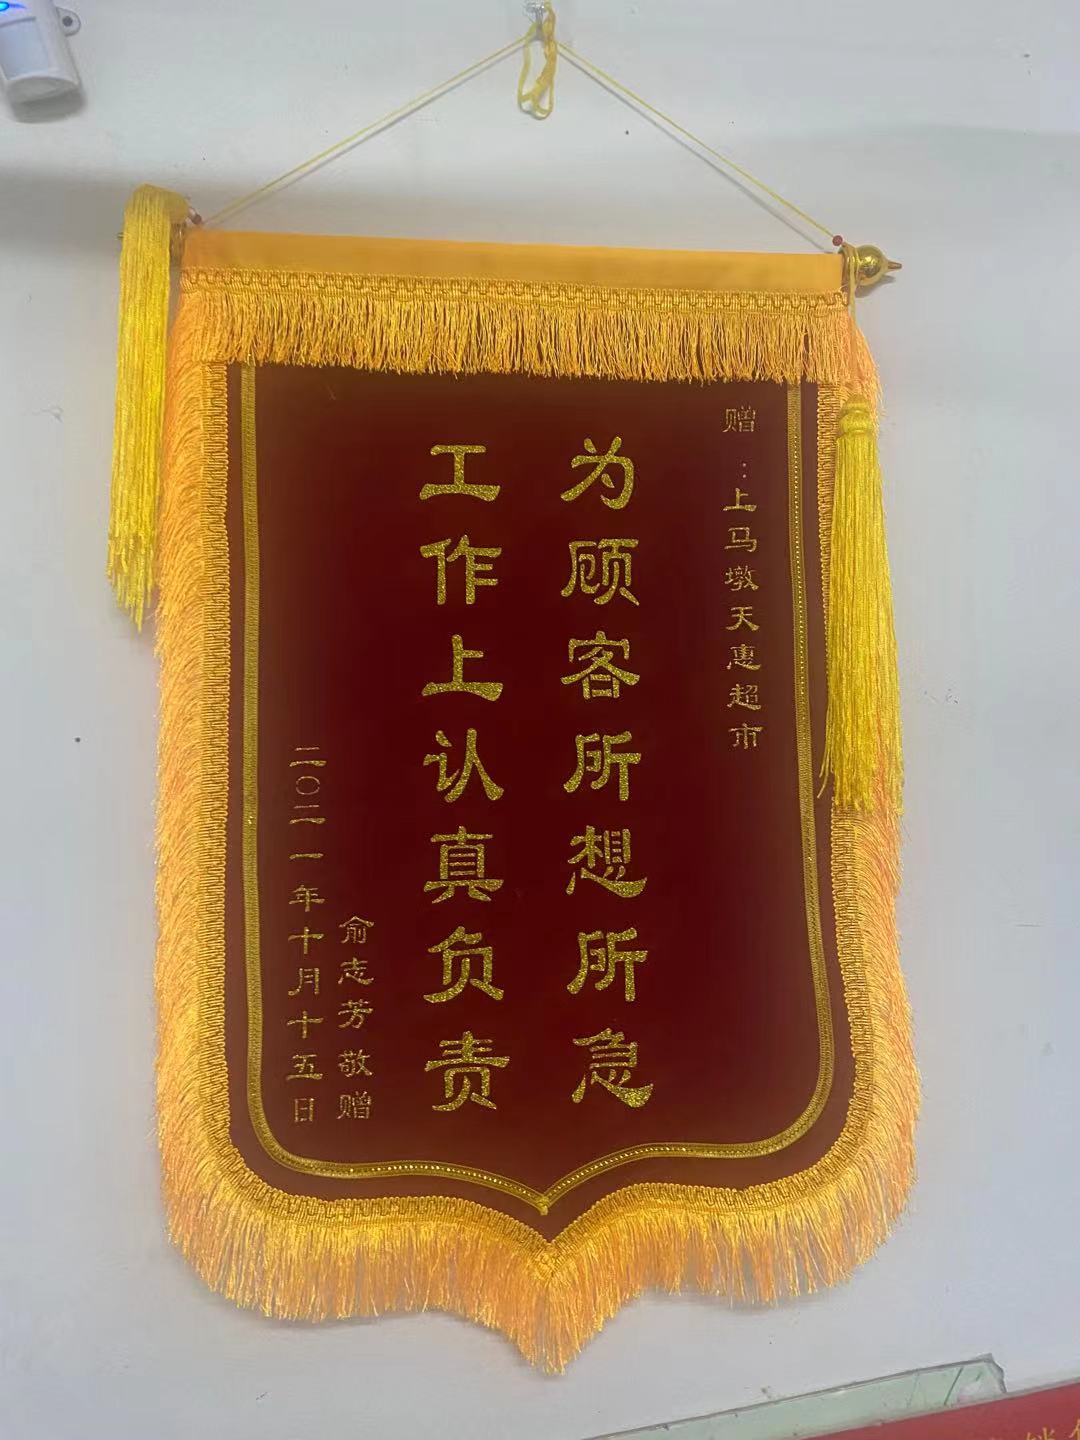 赠：上马墩天惠超市
为顾客所想所急
工作上认真负责
俞志芳敬赠
二〇二一年十月十五日
销